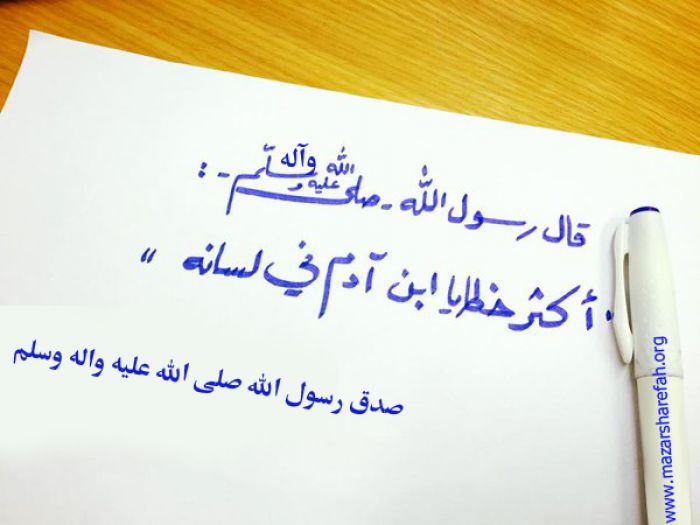 قال رسول الله - صلى الله عليه وآله وسلم - :
"أكثر خطايا ابن آدم في لسانه"
صدق رسول الله صلى الله عليه واله وسلم
www.mazarsharefah.org